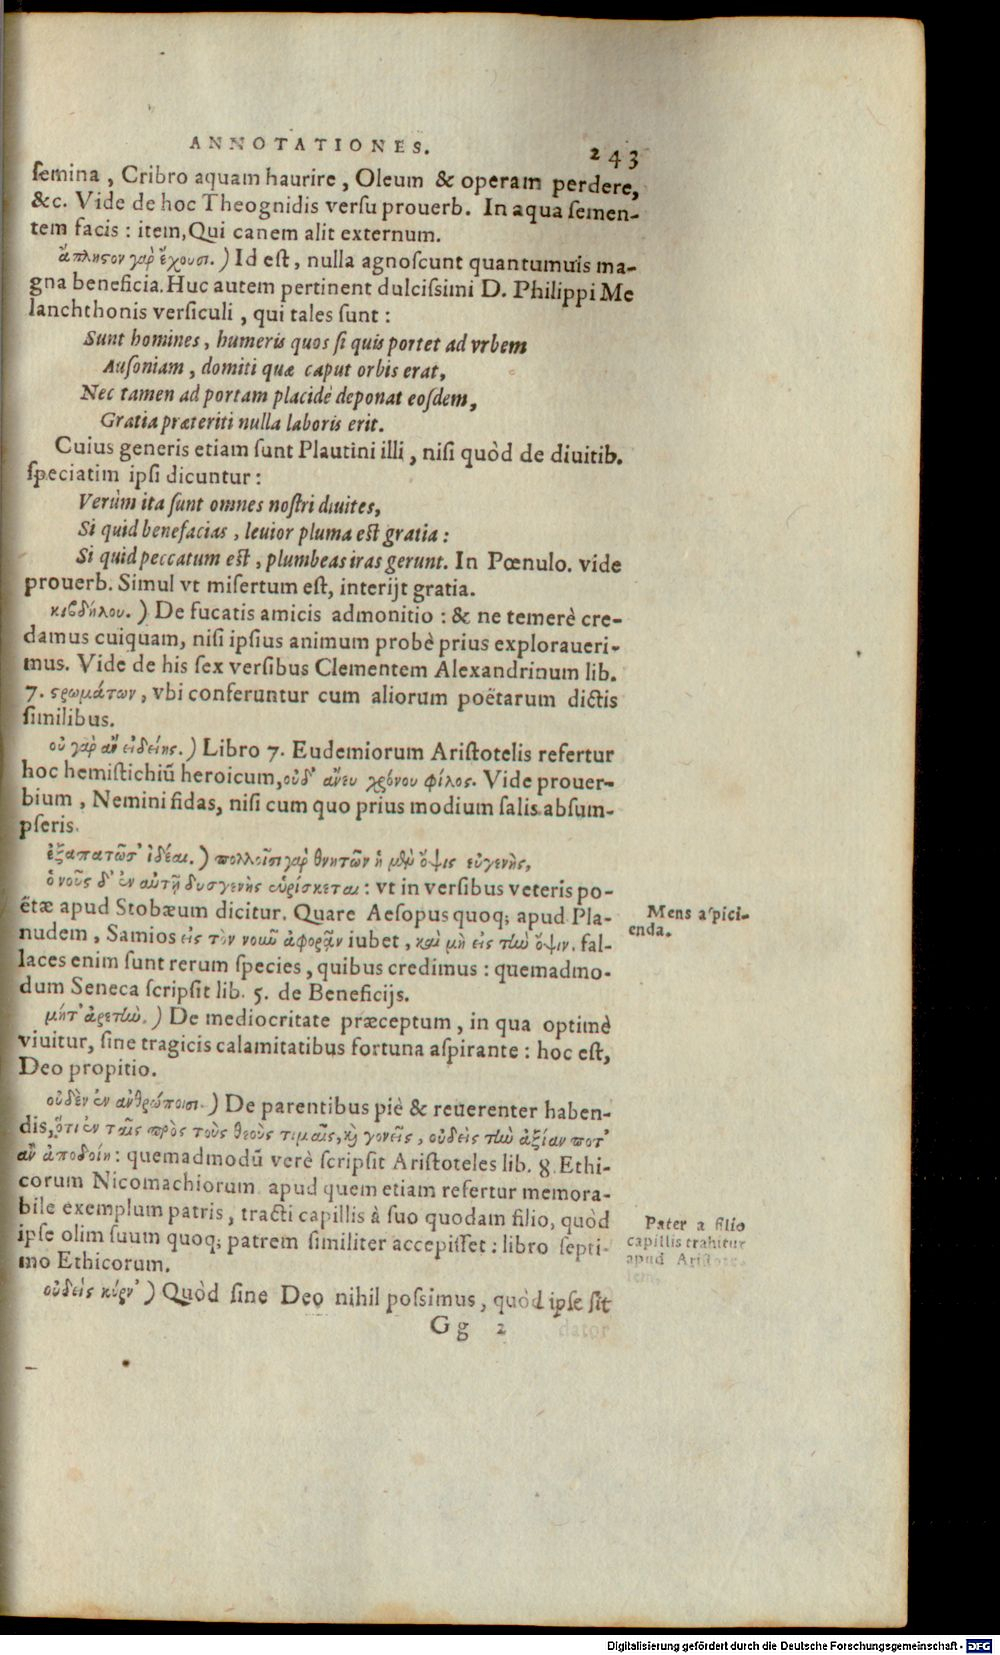 ANNOTATIONES. 243
ſemina, Cribro aquam haurire, Oleum & operam perdere,
&c. Vide de hoc Theognidis verſu prouerb. In aqua ſemen-
tem facis: item, Qui canem alit externum.
ἄπληϛον γὰρ ἔχουσι.) Id eſt, nulla agnoſcunt quantumuis ma-
gna beneficia. Huc autem pertinent dulciſsimi D. Philippi Me
lanchthonis verſiculi, qui tales ſunt:
Sunt homines, humeris quos ſi quis portet ad vrbem
Auſoniam, domiti quæ caput orbis erat,
Nec tamen ad portam placidè deponat eoſdem,
Gratia præteriti nulla laboris erit.
Cuius generis etiam ſunt Plautini illi, niſi quòd de diuitib.
ſpeciatim ipſi dicuntur:
Verùm ita ſunt omnes noſtri diuites,
Si quid benefacias, leuior pluma eſt gratia:
Si quid peccatum eſt, plumbeas iras gerunt. In Pœnulo. vide
prouerb. Simul vt miſertum eſt, interijt gratia.
κιβδήλου.) De fucatis amicis admonitio: & ne temerè cre-
damus cuiquam, niſi ipſius animum probè prius exploraueri-
mus. Vide de his ſex verſibus Clementem Alexandrinum lib.
7. ϛρωμάτων, vbi conferuntur cum aliorum poëtarum dictis
ſimilibus.
οὐ γὰρ ἂν εἰδείης.) Libro 7. Eudemiorum Ariſtotelis refertur
hoc hemiſtichiū heroicum, οὐδ' ἄνευ χρόνου φίλος. Vide prouer-
bium, Nemini fidas, niſi cum quo prius modium ſalis abſum-
pſeris.
ἐξαπατῶσ' ἰδέαι.) πολλοῖσι γὰρ θνητῶν ἡ μὲν ὄψις εὐγενὴς,
ὁ νοῦς δ' ἐν αὐτῇ δυσγενὴς εὑρίσκεται: vt in verſibus veteris po-
ëtæ apud Stobæum dicitur. Quare Aeſopus quoq; apud Pla-
nudem, Samios εἰς τὸν νοῦν ἀφορᾷν iubet, καὶ μὴ εἰς τὴν ὄψιν. fal-
laces enim ſunt rerum ſpecies, quibus credimus: quemadmo-
dum Seneca ſcripſit lib. 5. de Beneficijs.
Mens aſpici-
enda.
μήτ' ἀρετὴν.) De mediocritate præceptum, in qua optimè
viuitur, ſine tragicis calamitatibus fortuna aſpirante: hoc eſt,
Deo propitio.
οὐδὲν ἐν ἀνθρώποισι.) De parentibus piè & reuerenter haben-
dis, ὅτι ἐν ταῖς πρὸς τοὺς θεοὺς τιμαῖς, καὶ γονεῖς, οὐδεὶς τὴν ἀξίαν ποτ'
ἂν ἀποδοίη: quemadmodū verè ſcripſit Ariſtoteles lib. 8. Ethi-
corum Nicomachiorum apud quem etiam refertur memora-
bile exemplum patris, tracti capillis à ſuo quodam filio, quòd
ipſe olim ſuum quoq; patrem ſimiliter accepiſſet: libro ſepti-
mo Ethicorum.
Pater a filio
capillis trahitur
apud Ariſtote-
lem,
οὐδεὶς κύρν') Quòd ſine Deo nihil poſsimus, quòd ipſe ſit
Gg 2 dator
Digitalisierung gefördert durch die Deutsche Forschungsgemeinschaft - DFG